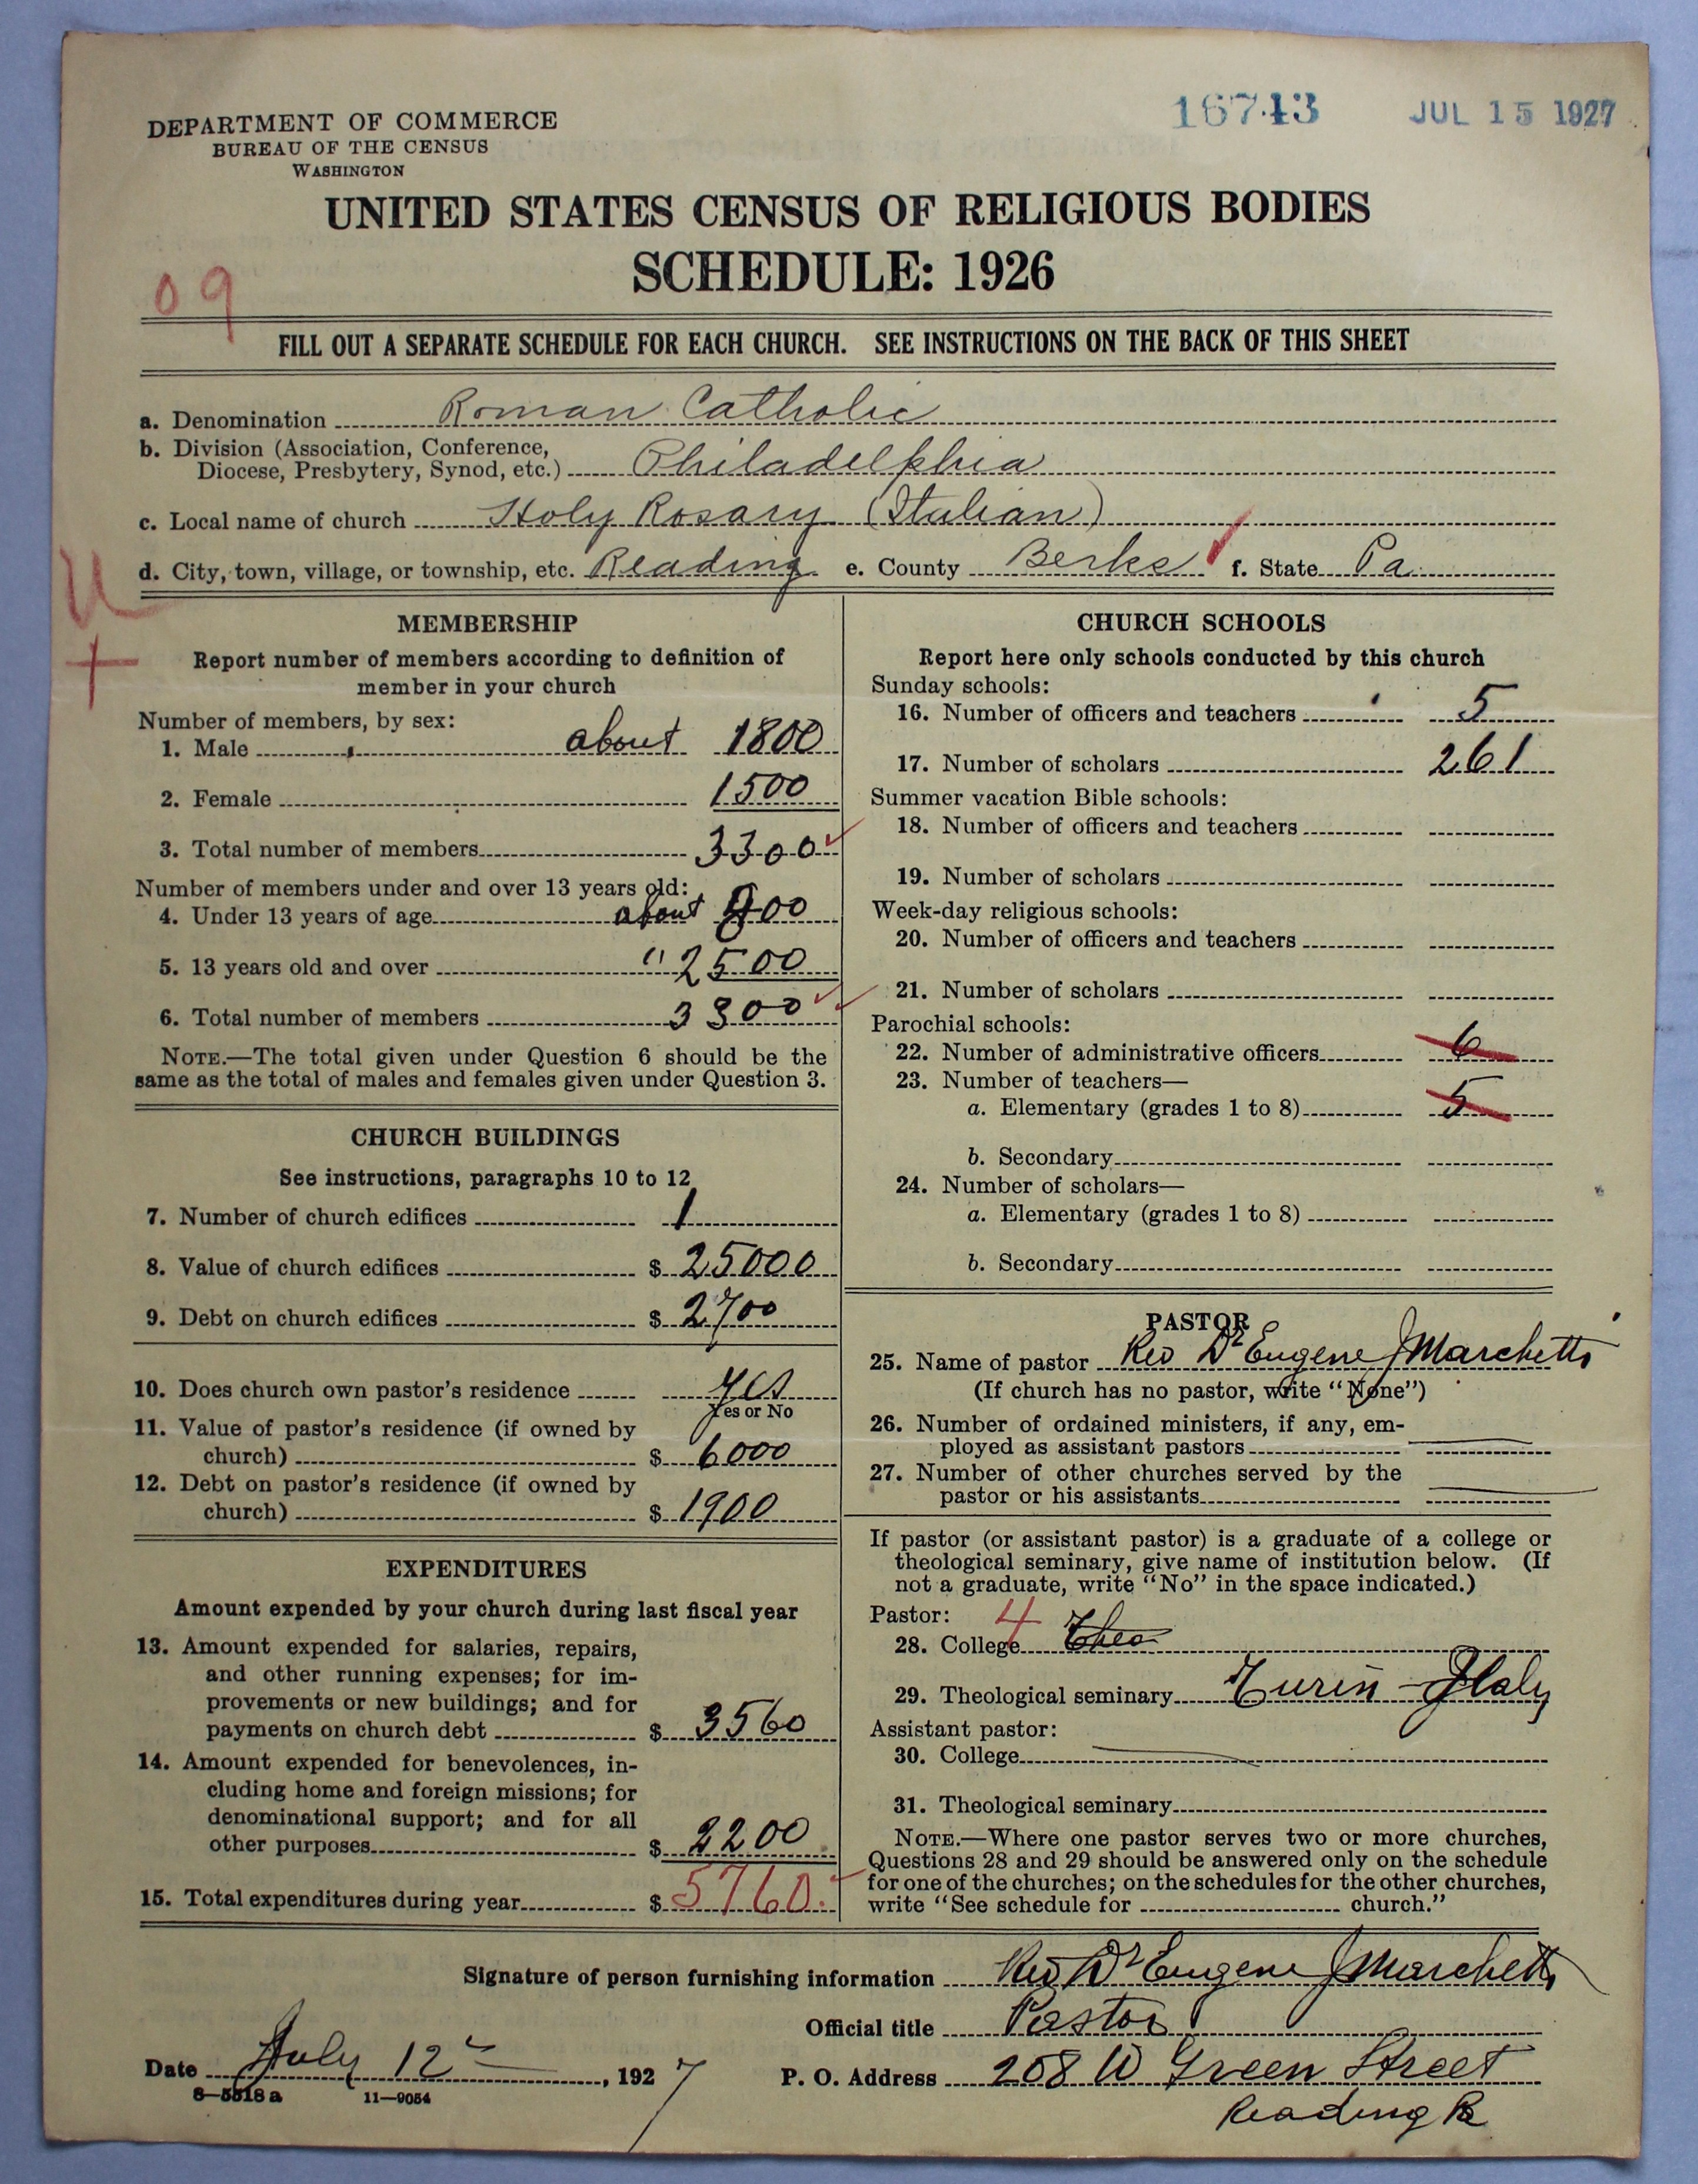 16743 JUL 15 1927
DEPARTMENT OF COMMERCE
BUREAU OF THE CENSUS
WASHINGTON
UNITED STATES CENSUS OF RELIGIOUS BODIES
SCHEDULE: 1926
09
FILL OUT A SEPARATE SCHEDULE FOR EACH CHURCH. SEE INSTRUCTIONS ON THE BACK OF THIS SHEET
a. Denomination Roman Catholic
b. Division (Association, Conference,
Diocese, Presbytery, Synod, etc.) Philadelphia
c. Local name of church Holy Rosary (Italian)
d. City, town, village, or township, etc. Reading e. County Berks f. State Pa.
U
+
MEMBERSHIP
Report number of members according to definition of
member in your church
Number of members, by sex:
1. Male about 1800
2. Female 1500
3. Total number of members 3300
Number of members under and over 13 years old:
4. Under 13 years of age about 800
5. 13 years old and over " 2500
6. Total number of members 3300
NOTE.—The total given under Question 6 should be the
same as the total of males and females given under Question 3.
CHURCH BUILDINGS
See instructions, paragraphs 10 to 12
7. Number of church edifices 1
8. Value of church edifices $ 25000
9. Debt on church edifices $ 2700
10. Does church own pastor's residence Yes
Yes or No
11. Value of pastor's residence (if owned by
church) $ 6000
12. Debt on pastor's residence (if owned by
church) $ 1900
EXPENDITURES
Amount expended by your church during last fiscal year
13. Amount expended for salaries, repairs,
and other running expenses; for im-
provements or new buildings; and for
payments on church debt $ 3560
14. Amount expended for benevolences, in-
cluding home and foreign missions; for
denominational support; and for all
other purposes $ 2200
15. Total expenditures during year $ 5760.
CHURCH SCHOOLS
Report here only schools conducted by this church
Sunday schools:
16. Number of officers and teachers 5
17. Number of scholars 261
Summer vacation Bible schools:
18. Number of officers and teachers
19. Number of scholars
Week-day religious schools:
20. Number of officers and teachers
21. Number of scholars
Parochial schools:
22. Number of administrative officers 6
23. Number of teachers—
a. Elementary (grades 1 to 8) 5
b. Secondary
24. Number of scholars—
a. Elementary (grades 1 to 8)
b. Secondary
PASTOR
25. Name of pastor Rev Dr Eugene J Marchetti
(If church has no pastor, write "None")
26. Number of ordained ministers, if any, em-
ployed as assistant pastors
27. Number of other churches served by the
pastor or his assistants
If pastor (or assistant pastor) is a graduate of a college or
theological seminary, give name of institution below. (If
not a graduate, write "No" in the space indicated.)
Pastor: 4
28. College Theo
29. Theological seminary Turin - Italy
Assistant pastor:
30. College
31. Theological seminary
NOTE.—Where one pastor serves two or more churches,
Questions 28 and 29 should be answered only on the schedule
for one of the churches; on the schedules for the other churches,
write "See schedule for church."
Signature of person furnishing information Rev Dr Eugene J Marchetti
Official title Pastor
Date July 12, 1927 P. O. Address 208 W Green Street
8—5518a 11—9054
Reading Pa